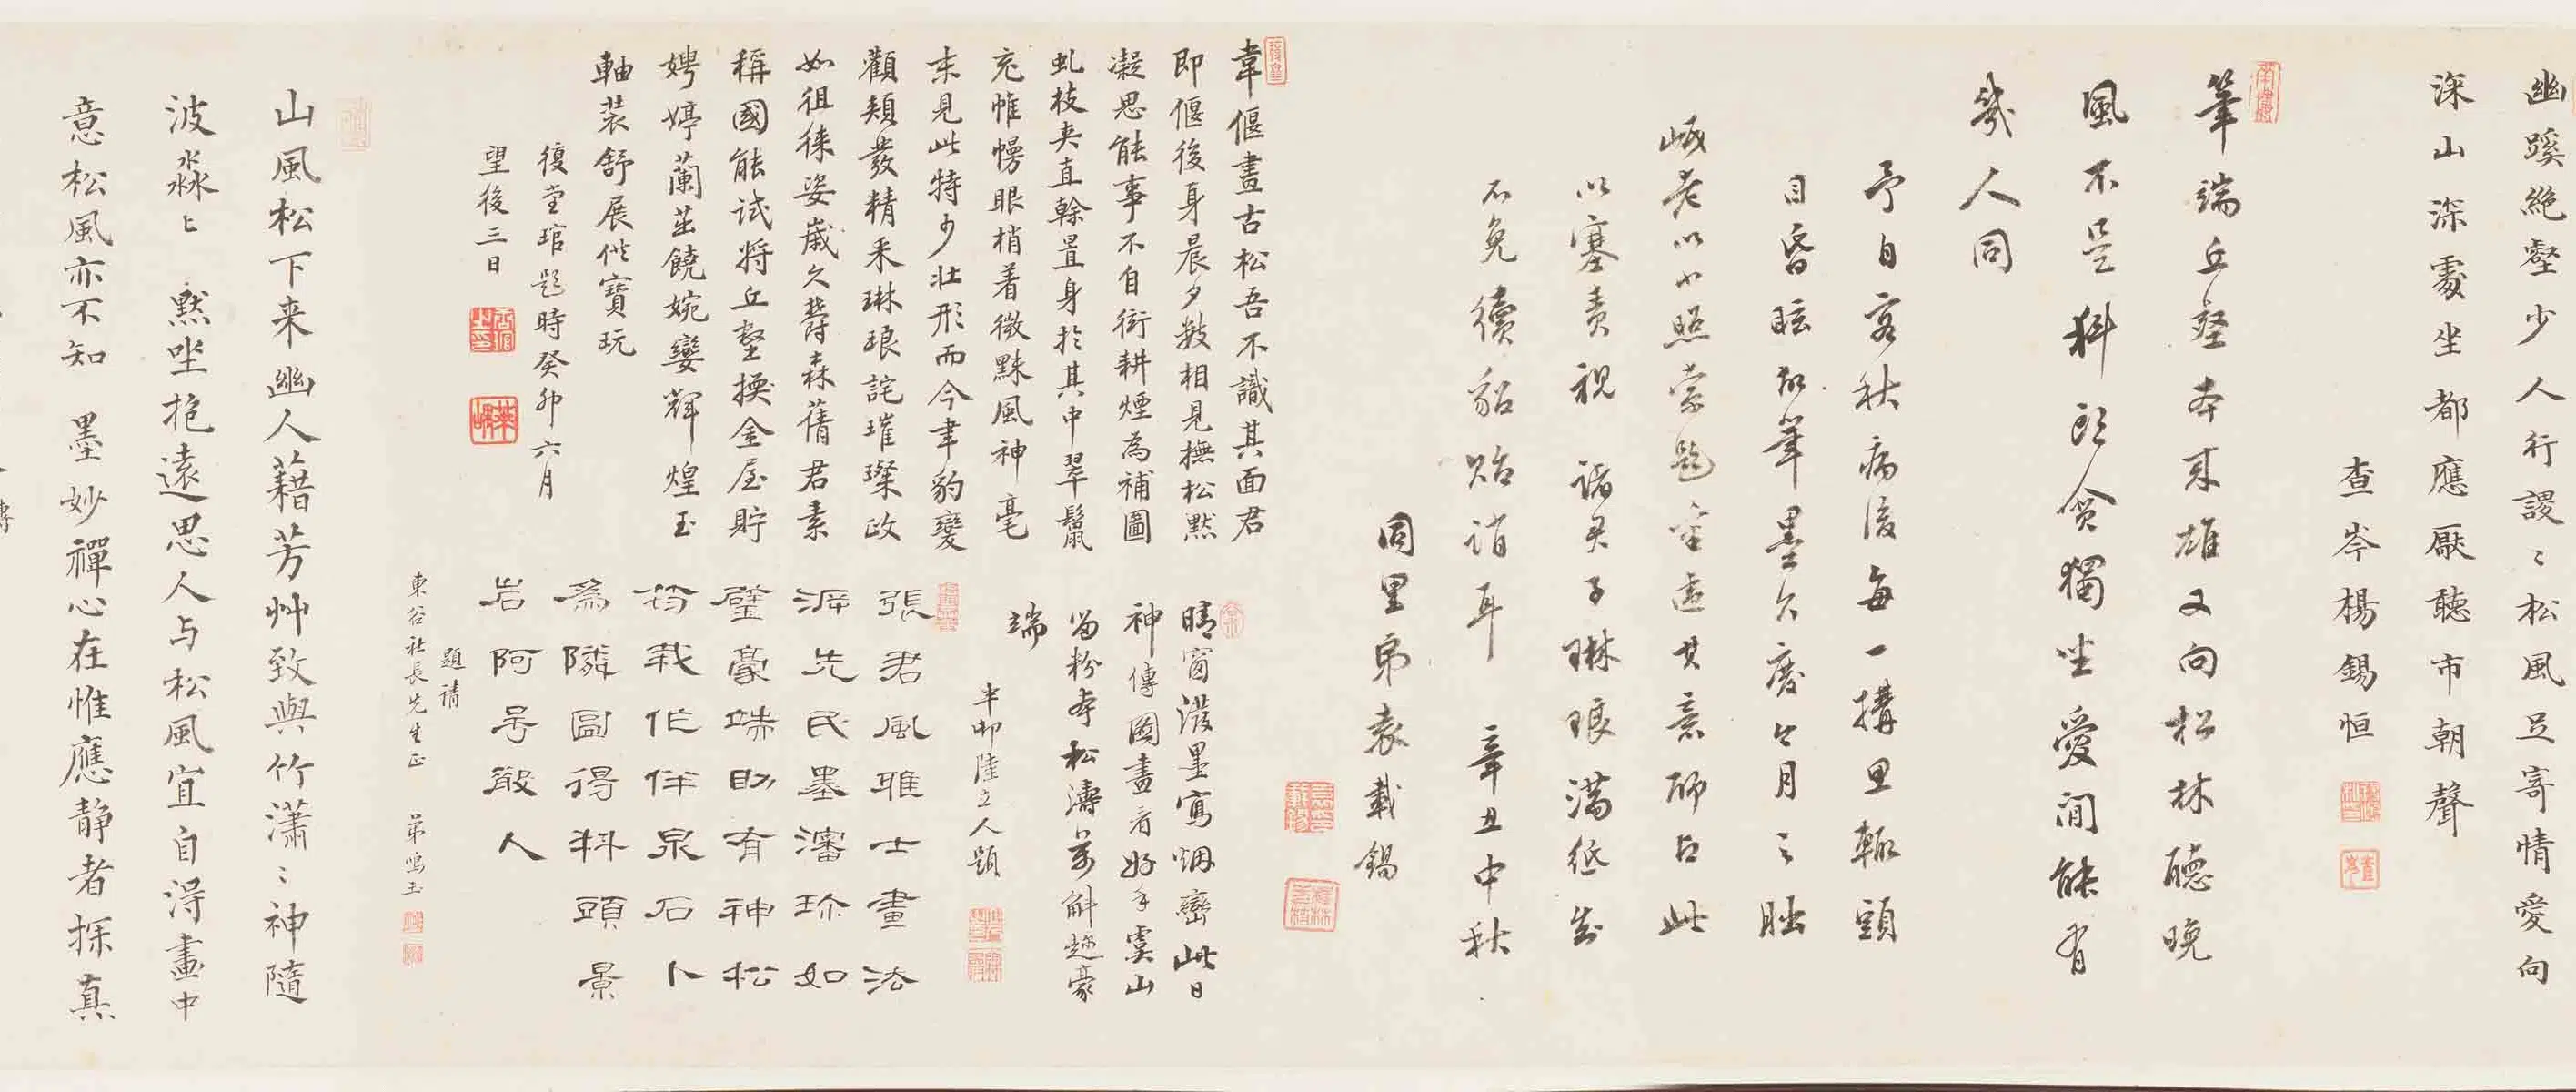 幽蹊絶壑少人行謖〻松風足寄情愛向
深山深處坐都應厭聽市朝聲
查岑楊錫恒
筆端丘壑本来雄又向松林聽晚
風不是科頭貪獨坐愛閒能有
幾人同
予自客秋病後每一搆思輒頭
目昏眩故筆墨久廢今月之朏
岷老以小照索題
以塞責視諸君子琳琅滿紙知
不免續貂貽誚耳 辛丑中秋
同里弟袁載錫
韋偃畫古松吾不識其面君
即偃後身晨夕數相見撫松默
凝思能事不自衒耕煙為補圖
虬枝夾直榦置身於其中翠鬣
充帷幔眼梢着微黓風神毫
末見此特少壯形而今聿豹變
顴頰發精采琳琅詫璀璨政
如徂徠姿歲久鬱森蒨君素
稱國能試将丘壑換金屋貯
娉婷蘭茁饒婉孌輝煌玉
軸裝舒展供寶玩
復堂琯題時癸卯六月
望後三日
晴窗潑墨寫烟巒此日
神傳圖畫看好手虞山
留粉本松濤萬斛起豪
端
半邨陸立人題
張君風雅士畫法
源先民墨瀋珎如
璧豪端助有神松
筠我作伴泉石卜
為隣圖得科頭景
岩阿号散人
題請
東谷社長先生正 弟鳴玉
山風松下来幽人藉芳艸致與竹瀟〻神隨
波淼〻 黙坐抱遠思人与松風宜自得畫中
意松風亦不知 墨妙禪心在惟應静者探真